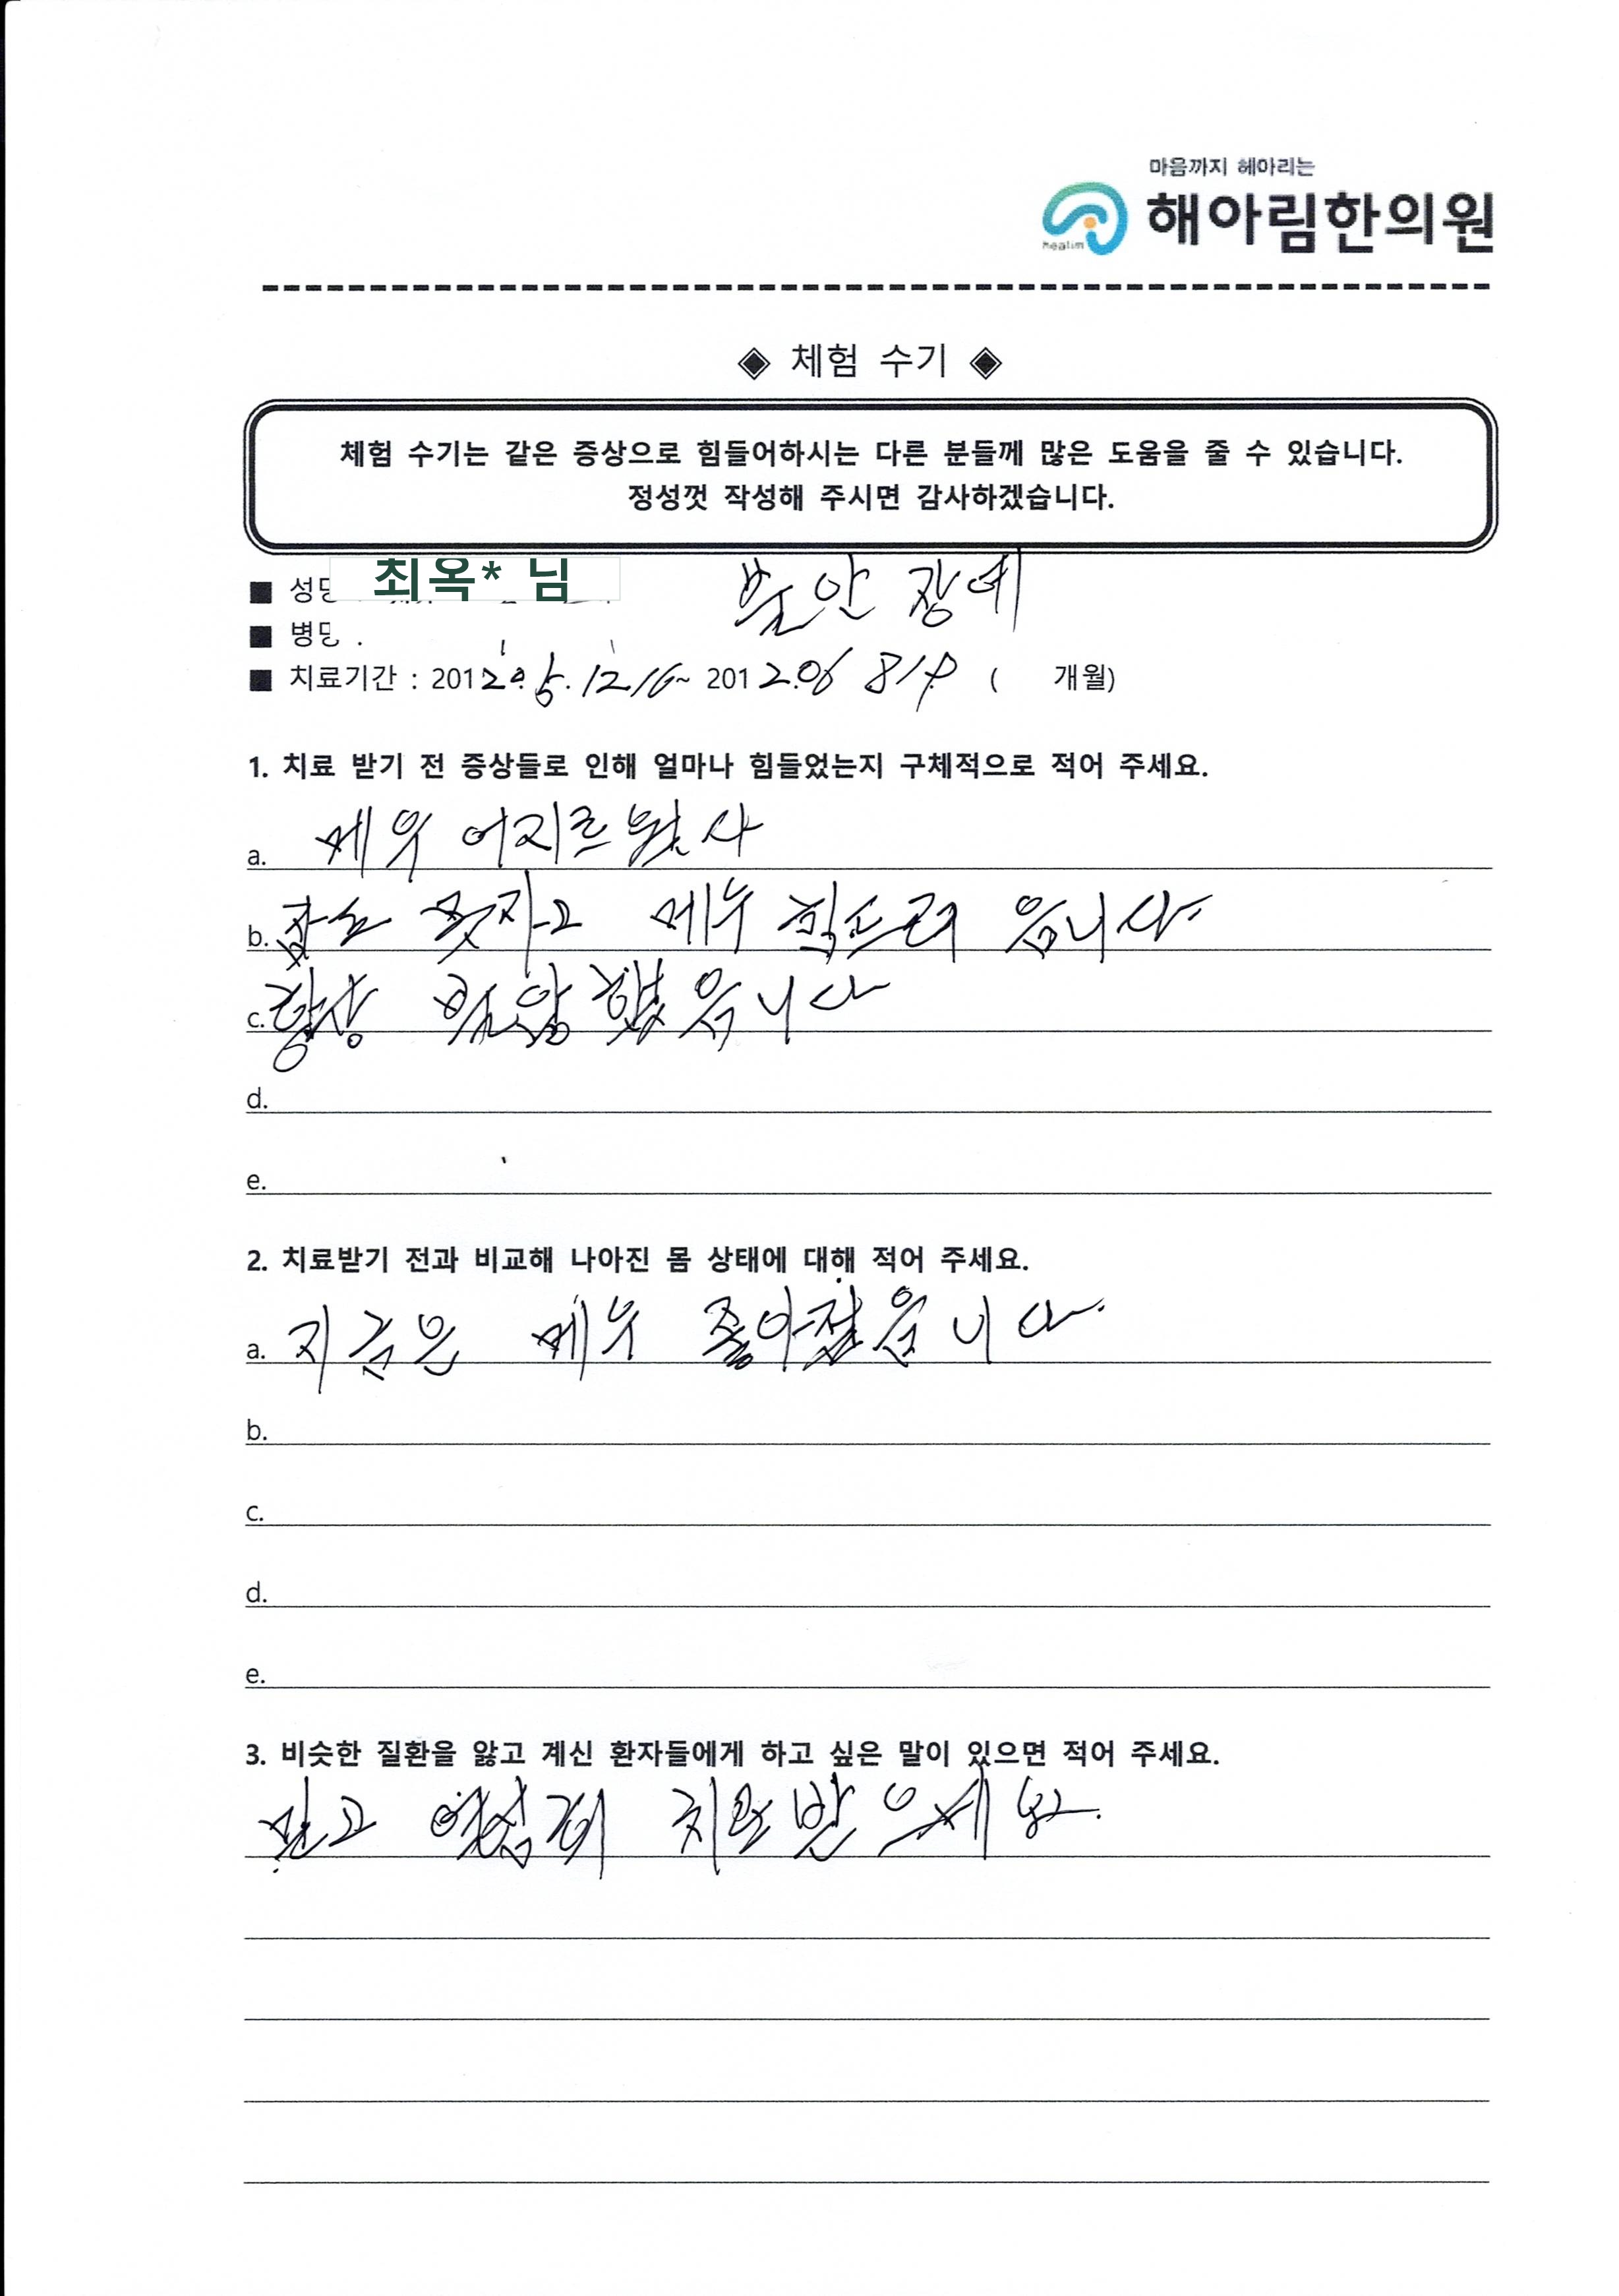 마음까지 헤아리는
healim
해아림한의원
◈ 체험 수기 ◈
체험 수기는 같은 증상으로 힘들어하시는 다른 분들께 많은 도움을 줄 수 있습니다.
정성껏 작성해 주시면 감사하겠습니다.
■ 성명 최옥* 님
불안 장애
■ 병명 .
■ 치료기간 : 201 12.16~ 201 ( 개월)
1. 치료 받기 전 증상들로 인해 얼마나 힘들었는지 구체적으로 적어 주세요.
a. 메우
b. 잠도 못자고 메우 힘드러 읍니다.
c. 항상 불안했읍니다
d.
e.
2. 치료받기 전과 비교해 나아진 몸 상태에 대해 적어 주세요.
a. 지금은 메우 좋아졌읍니다.
b.
c.
d.
e.
3. 비슷한 질환을 앓고 계신 환자들에게 하고 싶은 말이 있으면 적어 주세요.
믿고 치료 받으세요.